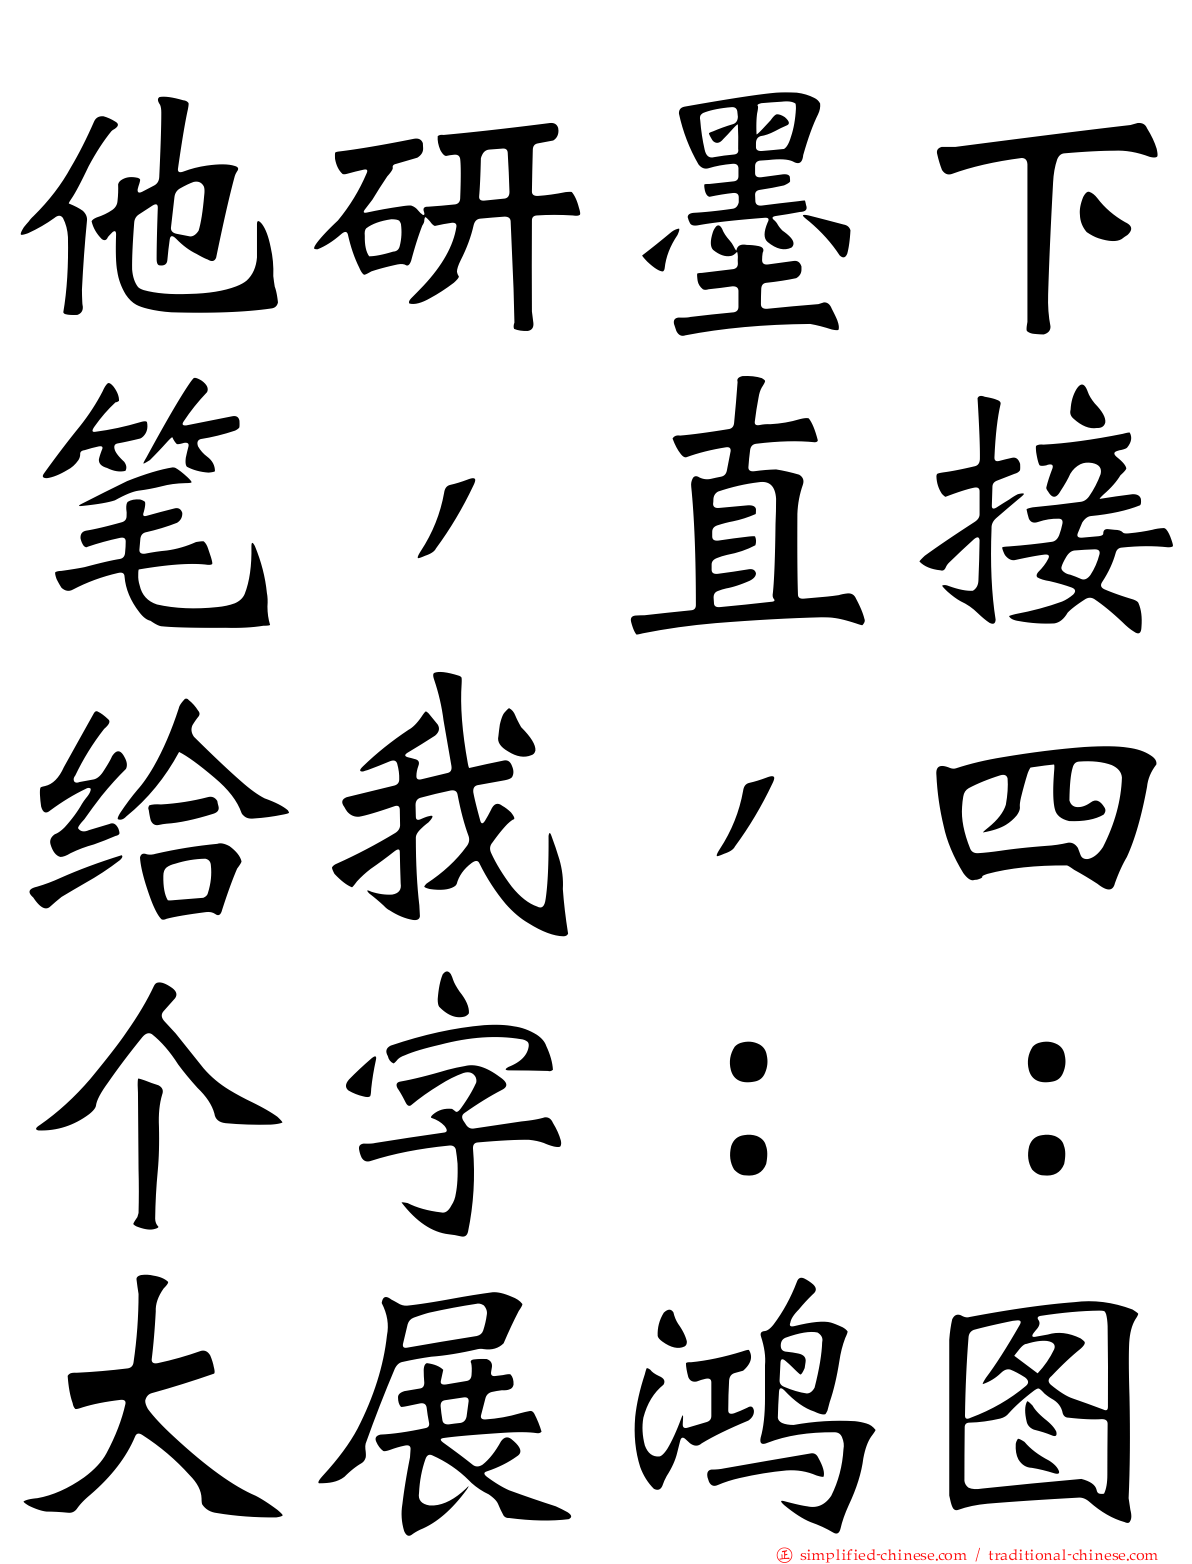 他研墨下
笔，直接
给我，四
个字：：
大展鸿图
正 simplified-chinese.com / traditional-chinese.com